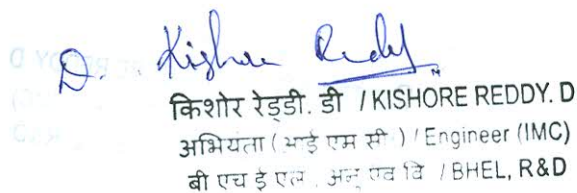 D. Kishore Reddy
किशोर रेड्डी. डी / KISHORE REDDY. D
अभियंता ( आई एम सी ) / Engineer (IMC)
बी एच ई एल , अनु एवं वि / BHEL, R&D